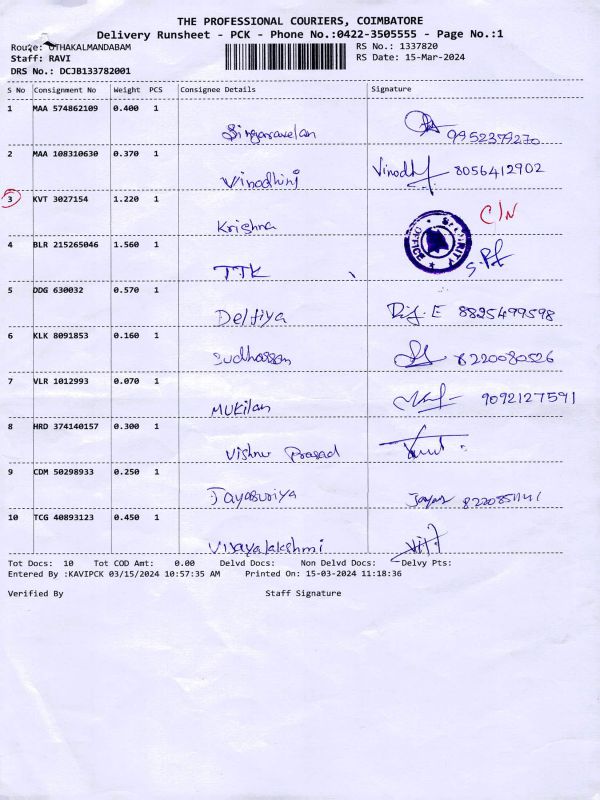 THE PROFESSIONAL COURIERS, COIMBATORE
Delivery Runsheet - PCK - Phone No.:0422-3505555 - Page No.:1
Route: OTHAKALMANDABAM
RS No.: 1337820
Staff: RAVI
RS Date: 15-Mar-2024
DRS No.: DCJB133782001
S No Consignment No Weight PCS Consignee Details Signature
1 MAA 574862109 0.400 1
Singaravelan 9952379270
2 MAA 108310630 0.370 1
Vinodhini Vinodh 8056412902
3 KVT 3027154 1.220 1
Krishna C/N
SECURITY OFFICE
4 BLR 215265046 1.560 1
TTK
5 DDG 630032 0.570 1
8825499598
6 KLK 8091853 0.160 1
Sudhassan 8220080526
7 VLR 1012993 0.070 1
Mukilan 9092127591
8 HRD 374140157 0.300 1
Vishnu Prasad
9 CDM 50298933 0.250 1
Jayasuriya
10 TCG 40893123 0.450 1
Vijayalakshmi
Tot Docs: 10 Tot COD Amt: 0.00 Delvd Docs: Non Delvd Docs: Delvy Pts:
Entered By :KAVIPCK 03/15/2024 10:57:35 AM Printed On: 15-03-2024 11:18:36
Verified By Staff Signature